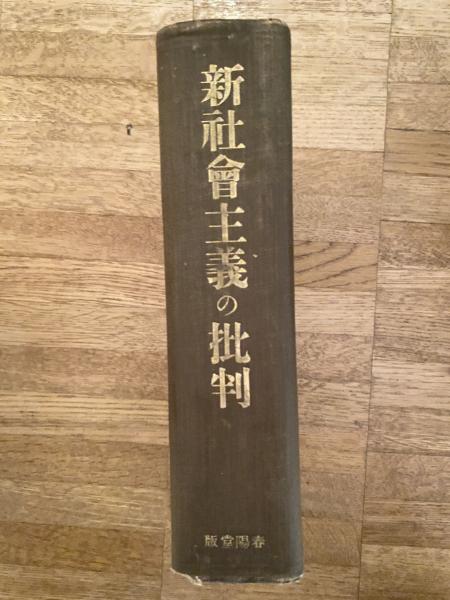 新社會主義の批判
春陽堂版